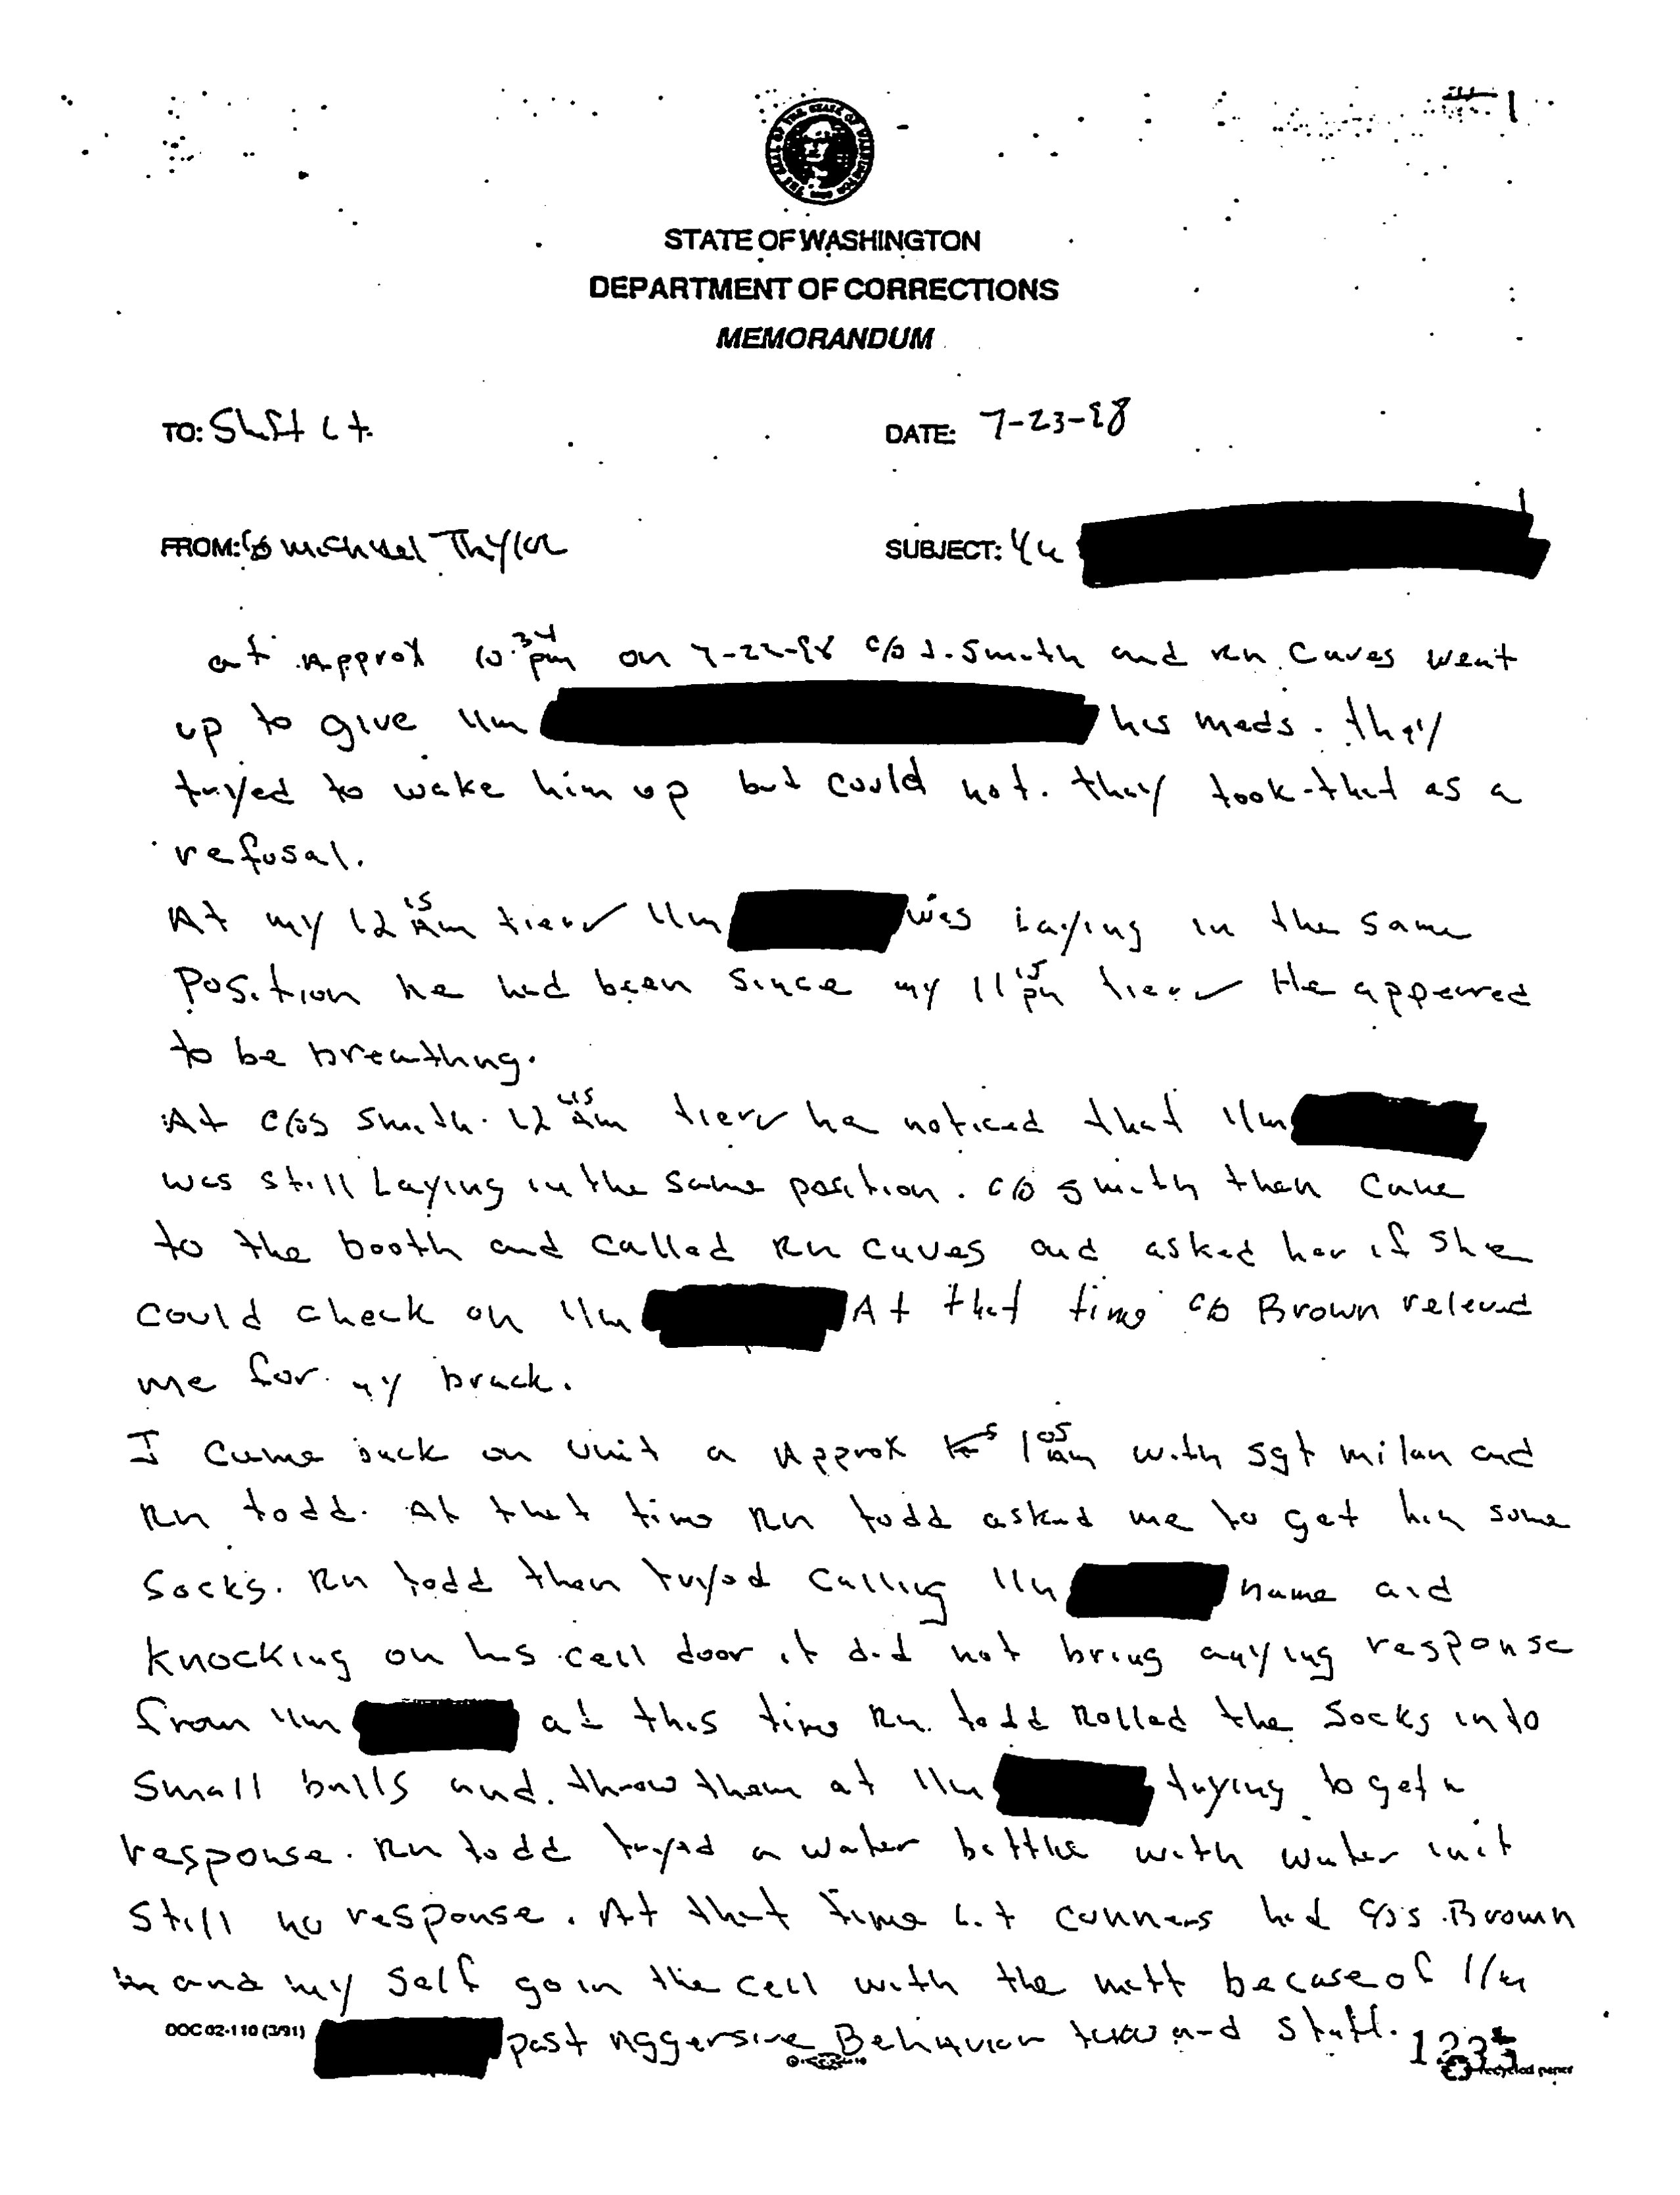 STATE OF WASHINGTON
DEPARTMENT OF CORRECTIONS
MEMORANDUM
TO: Shift Lt.
DATE: 7-23-98
FROM: C/O Michael Thylor
SUBJECT: I/m
at Approx 10:34 pm on 7-22-98 C/O J. Smith and Rn Caves went
up to give I/m his meds. they
tryed to wake him up but could not. they took that as a
refusal.
At my 12 15 Am tier I/m was Laying in the same
Position he had been since my 11 15 pm tier He appeared
to be breathng.
At C/Os Smith 12 45 am tier he noticed that I/m
was still Laying in the same position. C/O Smith then came
to the booth and called Rn Caves and asked her if she
could check on I/m At that time C/O Brown releved
me for my brack.
I came back on unit a Approx 1 05 am with Sgt milan and
Rn todd. At that time Rn todd asked me to get him some
socks. Rn todd then tryed calling I/m name and
knocking on his cell door it did not bring anying response
from I/m at this time Rn. todd Rolled the socks into
small balls and. throw them at I/m trying to get a
response. Rn todd tryed a water bottle with water init
still no response. At that time L.t conners had C/Os. Brown
and my self go in the cell with the matt becase of I/m
past Aggersive Behavior toward staff.
DOC 02-110 (3/91)
recycled paper